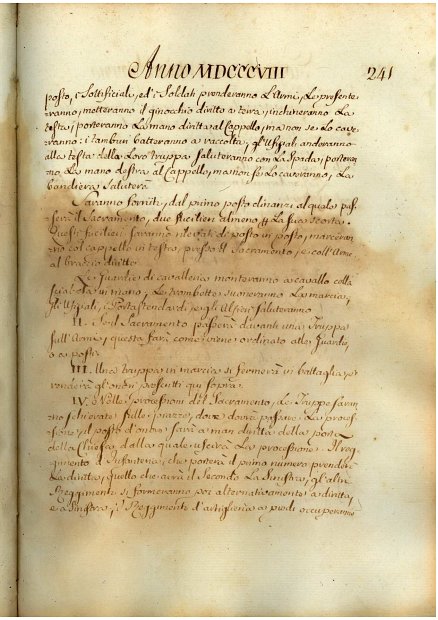 Anno MDCCCVIII 241
posto, i Sottificiali, ed i Soldati prenderanno L'Armi, Le presente
ranno, metteranno il ginocchio diritto a terra, inchineranno La
testa, porteranno La mano diritta al Cappello, ma non se Lo cave
ranno: i tamburi batteranno a raccolta, gl'Ufiziali anderanno
alla testa della Loro truppa saluteranno con La Spada, porteran
no La mano destra al cappello, ma non se Lo caveranno, La
bandiera Saluterà
Saranno forniti, dal primo posto dinanzi al quale pas
serà il Sacramento, due fucilieri almeno p La sua scorta.
Questi fucilieri saranno rilevati di posto in posto, marceran
no col cappello in testa, presso il Sacramento, e coll'Arme
al braccio diritto
Le Guardie di cavalleria monteranno a cavallo colla
sciabola in mano, Le trombette suoneranno La marcia,
gl'Ufiziali, i Porta Stendardi, e gli Alfieri saluteranno
II. Se il Sacramento passerà davanti una Truppa
sull'Armi, questa farà come viene ordinato alle Guardie,
o a posti
III. Una truppa in marcia si fermerà in battaglia, e
renderà gl'onori prescritti qui sopra.
IV. Nelle Processioni del Sacramento, Le Truppe saran
no schierate sulle piazze, dove dovrà passare La proces
sione, il posto d'onore sarà a man diritta della porta
della Chiesa, dalla quale uscirà La processione. Il reg
gimento d'Infanteria, che porterà il primo numero prenderà
La diritta, quello che avrà il Secondo La Sinistra, gl'altri
Reggimenti si formeranno poi alternativamente a diritta,
e a Sinistra, i Reggimenti d'artiglieria a piedi occuperanno